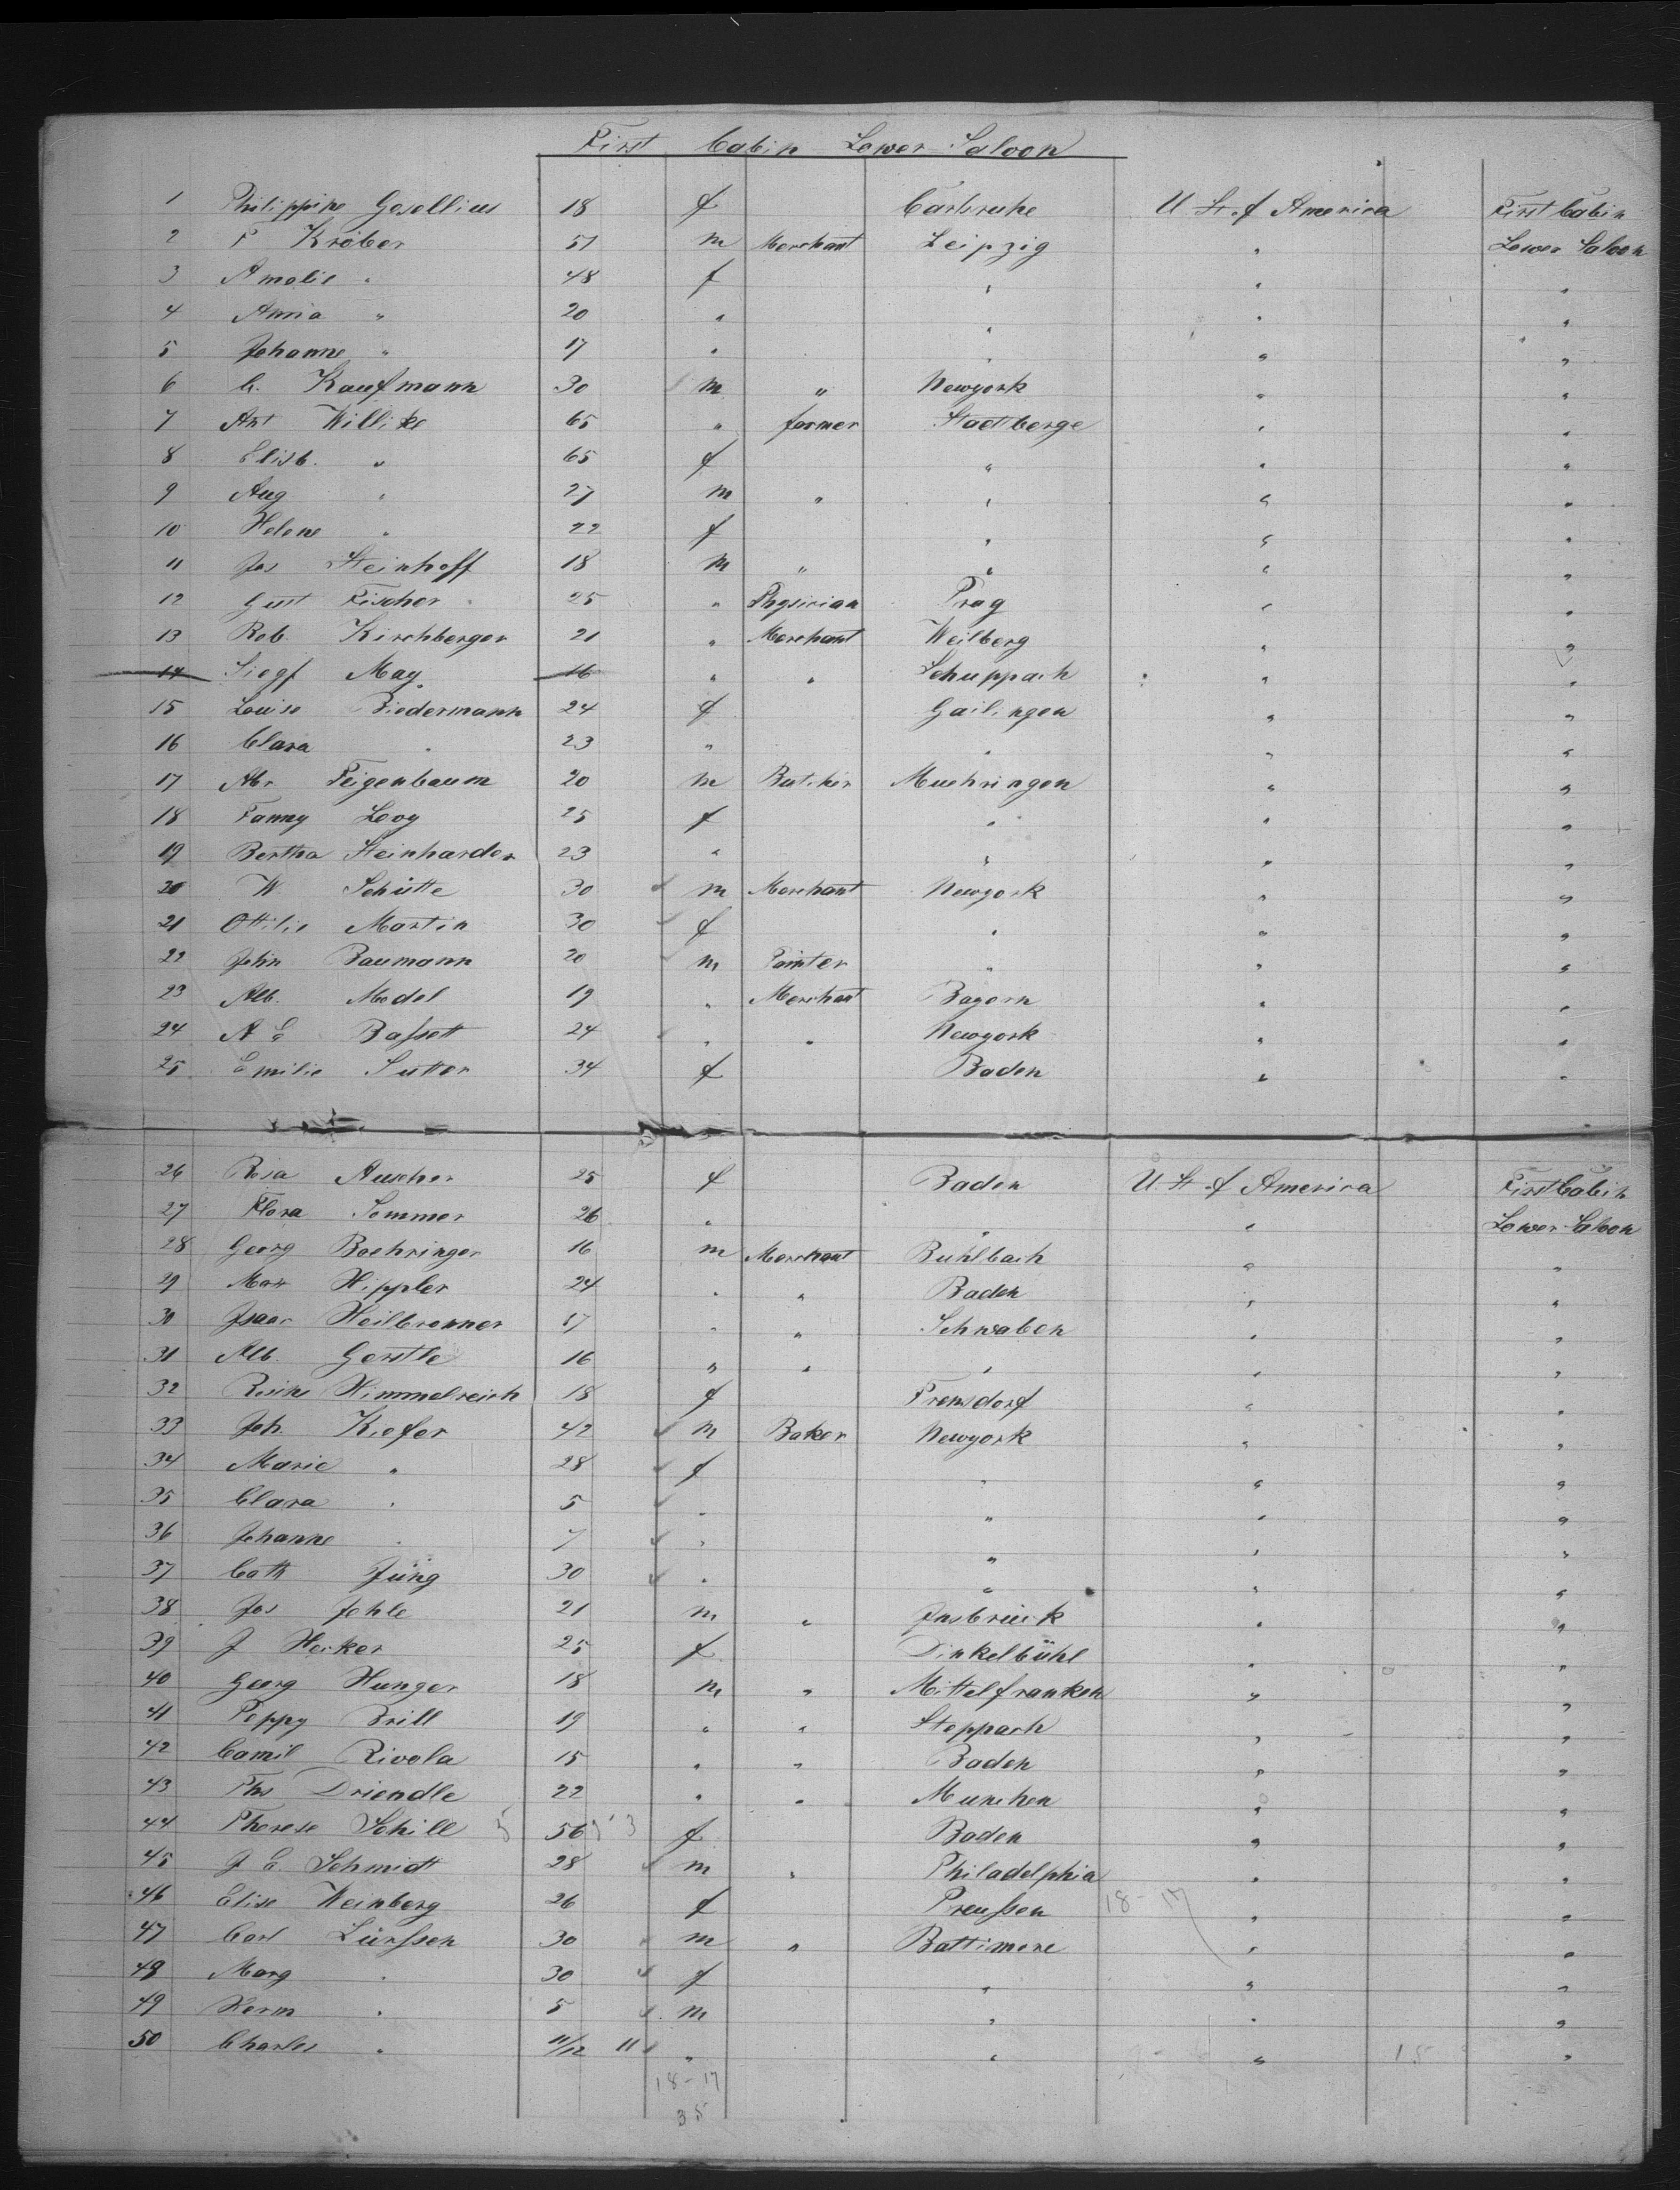 First Cabin Lower Saloon
1 Philippine Gesellius 18 f Carlsruhe U St. of America First Cabin
2 F Kröber 51 m Merchant Leipzig " Lower Saloon
3 Amalie " 48 f " " "
4 Anna " 20 " " " "
5 Johanne " 17 " " " "
6 C. Kaufmann 30 m " Newyork " "
7 Ant Willike 65 " farmer Stadtberge " "
8 Elisb. " 65 f " " "
9 Aug " 27 m " " " "
10 Helene " 22 f " " "
11 Jos Steinhoff 18 m " " " "
12 Gust Fischer 25 " Physician Prag " "
13 Rob. Kirchberger 21 " Merchant Weilberg " "
14 Siegf May 16 " " Schuppach " "
15 Louise Biedermann 24 f Gailingen " "
16 Clara " 23 " " " "
17 Abr Feigenbaum 20 m Butcher Muehringen " "
18 Fanny Levy 25 f " " "
19 Bertha Steinharder 23 " " " "
20 W Schütte 30 m Merchant Newyork " "
21 Ottilie Martin 30 f " " "
22 John Baumann 20 m Painter " " "
23 Alb. Model 19 " Merchant Bayern " "
24 A E Bassett 24 " " Newyork " "
25 Emilie Sutter 34 f Baden " "
26 Rosa Auscher 25 f Baden U. St. of America First Cabin
27 Flora Sommer 26 " " " Lower Saloon
28 Georg Boehringer 16 m Merchant Buhlbach " "
29 Max Hippler 24 " " Baden " "
30 Isaac Heilbronner 17 " " Schwaben " "
31 Alb. Gerstle 16 " " " " "
32 Rosine Himmelreich 18 f Frensdorf " "
33 Joh. Kiefer 42 m Baker Newyork " "
34 Marie " 28 f " " "
35 Clara " 5 " " " "
36 Johanne " 7 " " " "
37 Cath Jüng 30 " " " "
38 Jos Jehle 21 m " Insbruck " "
39 J Hecker 25 f Dinkelbühl " "
40 Georg Hunger 18 m " Mittelfranken " "
41 Peppy Brill 19 " " Steppach " "
42 Camil Rivola 15 " " Baden " "
43 Ths Driendle 22 " " Munchen " "
44 Therese Schill 56 f Baden " "
45 J E. Schmidt 28 m " Philadelphia " "
46 Elise Weinberg 26 f Preussen 18-17 " "
47 Carl Lürssen 30 m " Baltimore " "
48 Marg " 30 f " " "
49 Herm " 5 m " " "
50 Charles " 11/12 11 " " " 18 "
18-17
35